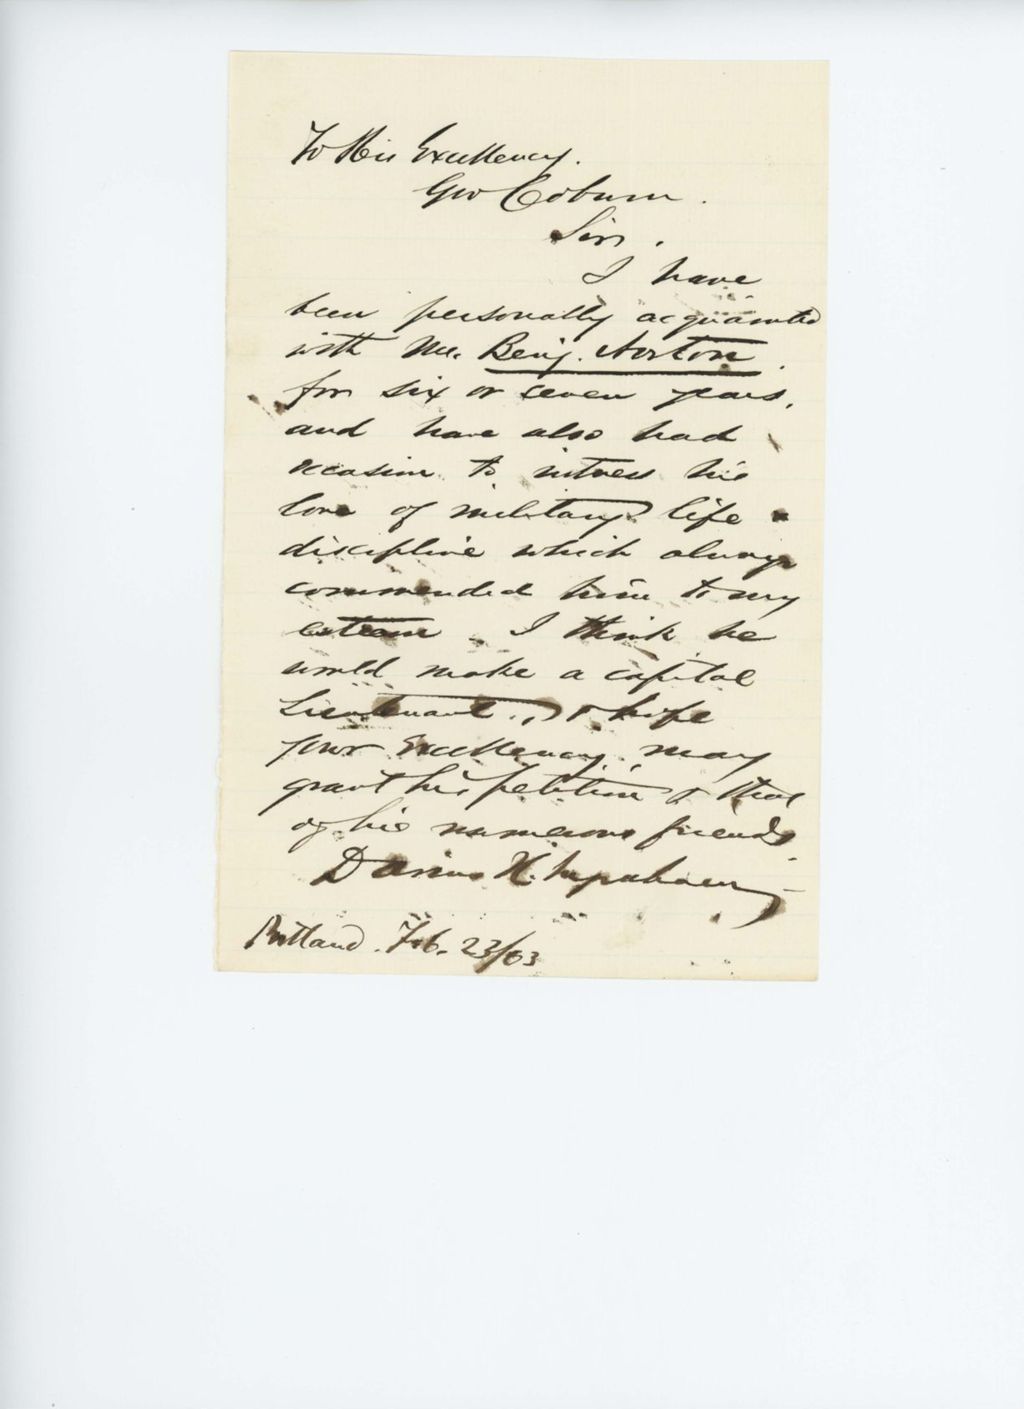 To His Excellency.
Gov Coburn.
Sir,
I have
been personally acquainted
with Mr. Benj. Norton
for six or seven years,
and have also had
occasion to witness his
love of military life &
discipline which always
commended him to my
esteem. I think he
would make a capital
Lieutenant., & hope
your Excellency may
grant his petition & that
of his numerous friends.
Darius H. Ingraham
Portland. Feb. 23/63